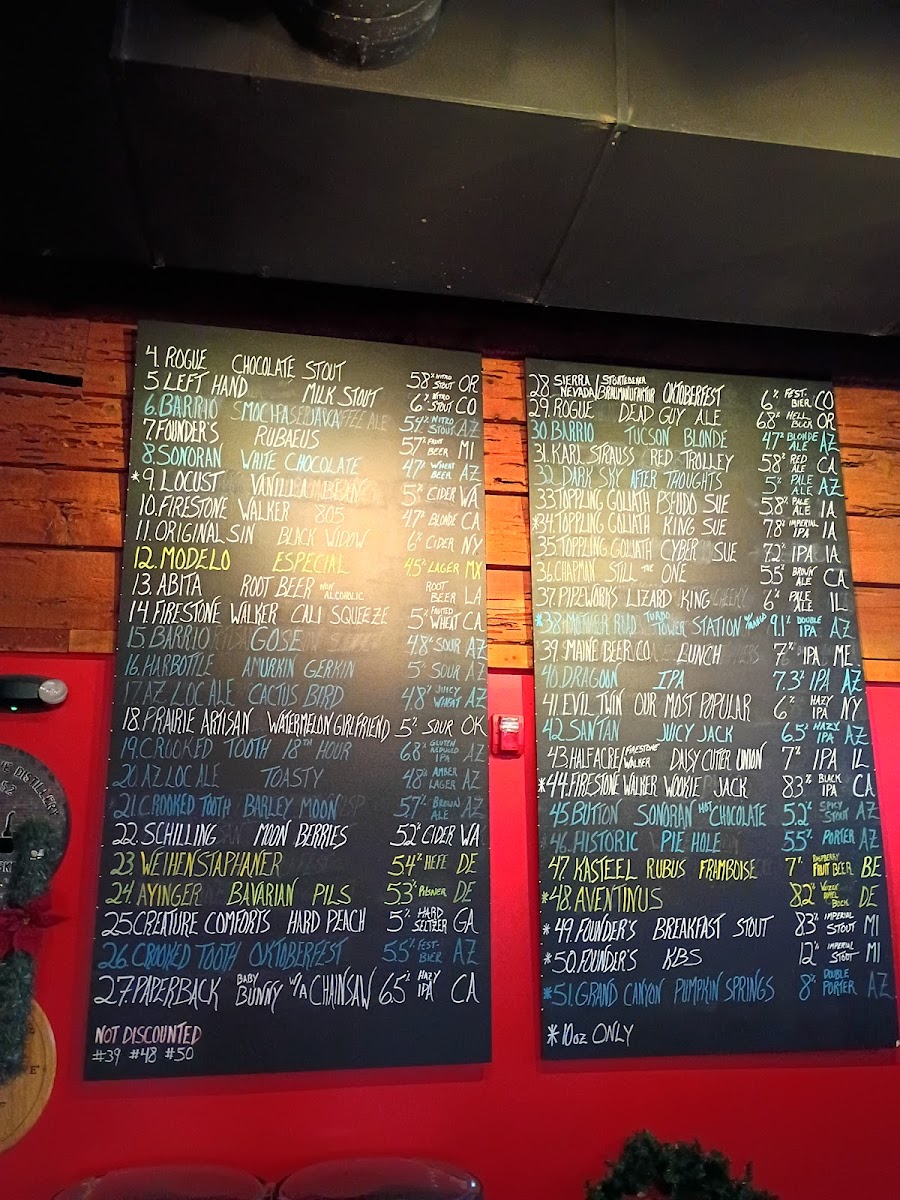 4. ROGUE CHOCOLATE STOUT 5.8% NITRO STOUT OR
5. LEFT HAND MILK STOUT 6% NITRO STOUT CO
6. BARRIO MOCHA JAVA 5.4% NITRO STOUT AZ
7. FOUNDER'S RUBAEUS 5.7% FRUIT BEER MI
8. SONORAN WHITE CHOCOLATE 4.7% WHEAT BEER AZ
*9. LOCUST VANILLA BEAN 5% CIDER WA
10. FIRESTONE WALKER 805 4.7% BLONDE CA
11. ORIGINAL SIN BLACK WIDOW 6% CIDER NY
12. MODELO ESPECIAL 4.5% LAGER MX
13. ABITA ROOT BEER NON ALCOHOLIC ROOT BEER LA
14. FIRESTONE WALKER CALI SQUEEZE 5% FRUITED WHEAT CA
15. BARRIO GOSE 4.8% SOUR AZ
16. HARBOTTLE AMURKIN GERKIN 5% SOUR AZ
17. AZ LOCALE CACTUS BIRD 4.8% JUICY WHEAT AZ
18. PRAIRIE ARTISAN WATERMELON GIRLFRIEND 5% SOUR OK
19. CROOKED TOOTH 18TH HOUR 6.8% GLUTEN REDUCED IPA AZ
20. AZ LOCALE TOASTY 4.8% AMBER LAGER AZ
21. CROOKED TOOTH BARLEY MOON 5.7% BROWN ALE AZ
22. SCHILLING MOON BERRIES 5.2% CIDER WA
23. WEIHENSTAPHANER 5.4% HEFE DE
24. AYINGER BAVARIAN PILS 5.3% PILSNER DE
25. CREATURE COMFORTS HARD PEACH 5% HARD SELTZER GA
26. CROOKED TOOTH OKTOBERFEST 5.5% FEST-BIER AZ
27. PAPERBACK BABY BUNNY W/A CHAINSAW 6.5% HAZY IPA CA
NOT DISCOUNTED
#39 #48 #50
28. SIERRA NEVADA/ BRAUMANUFAKTUR OKTOBERFEST 6% FEST-BIER CO
29. ROGUE DEAD GUY ALE 6.8% HELL BOCK OR
30. BARRIO TUCSON BLONDE 4.7% BLONDE ALE AZ
31. KARL STRAUSS RED TROLLEY 5.8% RED ALE CA
32. DARK SKY AFTER THOUGHTS 5% PALE ALE AZ
33. TOPPLING GOLIATH PSEUDO SUE 5.8% PALE ALE IA
*34. TOPPLING GOLIATH KING SUE 7.8% IMPERIAL IPA IA
35. TOPPLING GOLIATH CYBER SUE 7.2% IPA IA
36. CHAPMAN STILL THE ONE 5.5% BROWN ALE CA
37. PIPEWORKS LIZARD KING 6% PALE ALE IL
*38. MOTHER ROAD TOWER STATION 9.1% DOUBLE IPA AZ
39. MAINE BEER CO LUNCH 7% IPA ME
40. DRAGOON IPA 7.3% IPA AZ
41. EVIL TWIN OUR MOST POPULAR 6% HAZY IPA NY
42. SANTAN JUICY JACK 6.5% HAZY IPA AZ
43. HALF ACRE/ FIRESTONE WALKER DAISY CUTTER UNION 7% IPA IL
*44. FIRESTONE WALKER WOOKIE JACK 8.3% BLACK IPA CA
45. BUTTON SONORAN HOT CHOCOLATE 5.2% SPICY STOUT AZ
*46. HISTORIC PIE HOLE 5.5% PORTER AZ
47. KASTEEL RUBUS FRAMBOISE 7% RASPBERRY FRUIT BEER BE
*48. AVENTINUS 8.2% BOCK DE
*49. FOUNDER'S BREAKFAST STOUT 8.3% IMPERIAL STOUT MI
*50. FOUNDER'S KBS 12% IMPERIAL STOUT MI
*51. GRAND CANYON PUMPKIN SPRINGS 8% DOUBLE PORTER AZ
*10oz ONLY